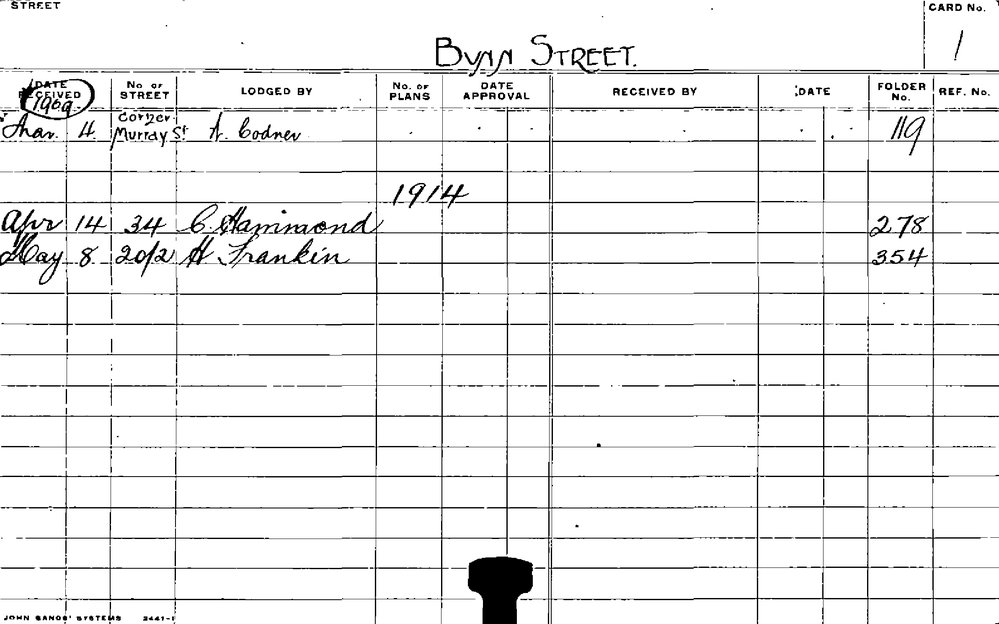 STREET
CARD No.
BYNN STREET.
1
DATE RECEIVED No OF STREET LODGED BY No. OF PLANS DATE APPROVAL RECEIVED BY DATE FOLDER No. REF. No.
1909
Mar. 4 Corner Murray St A. Codner 119
1914
Apr 14 34 C. Hammond 278
May 8 20/2 H Frankin 354
JOHN SANDS' SYSTEMS 2441-1